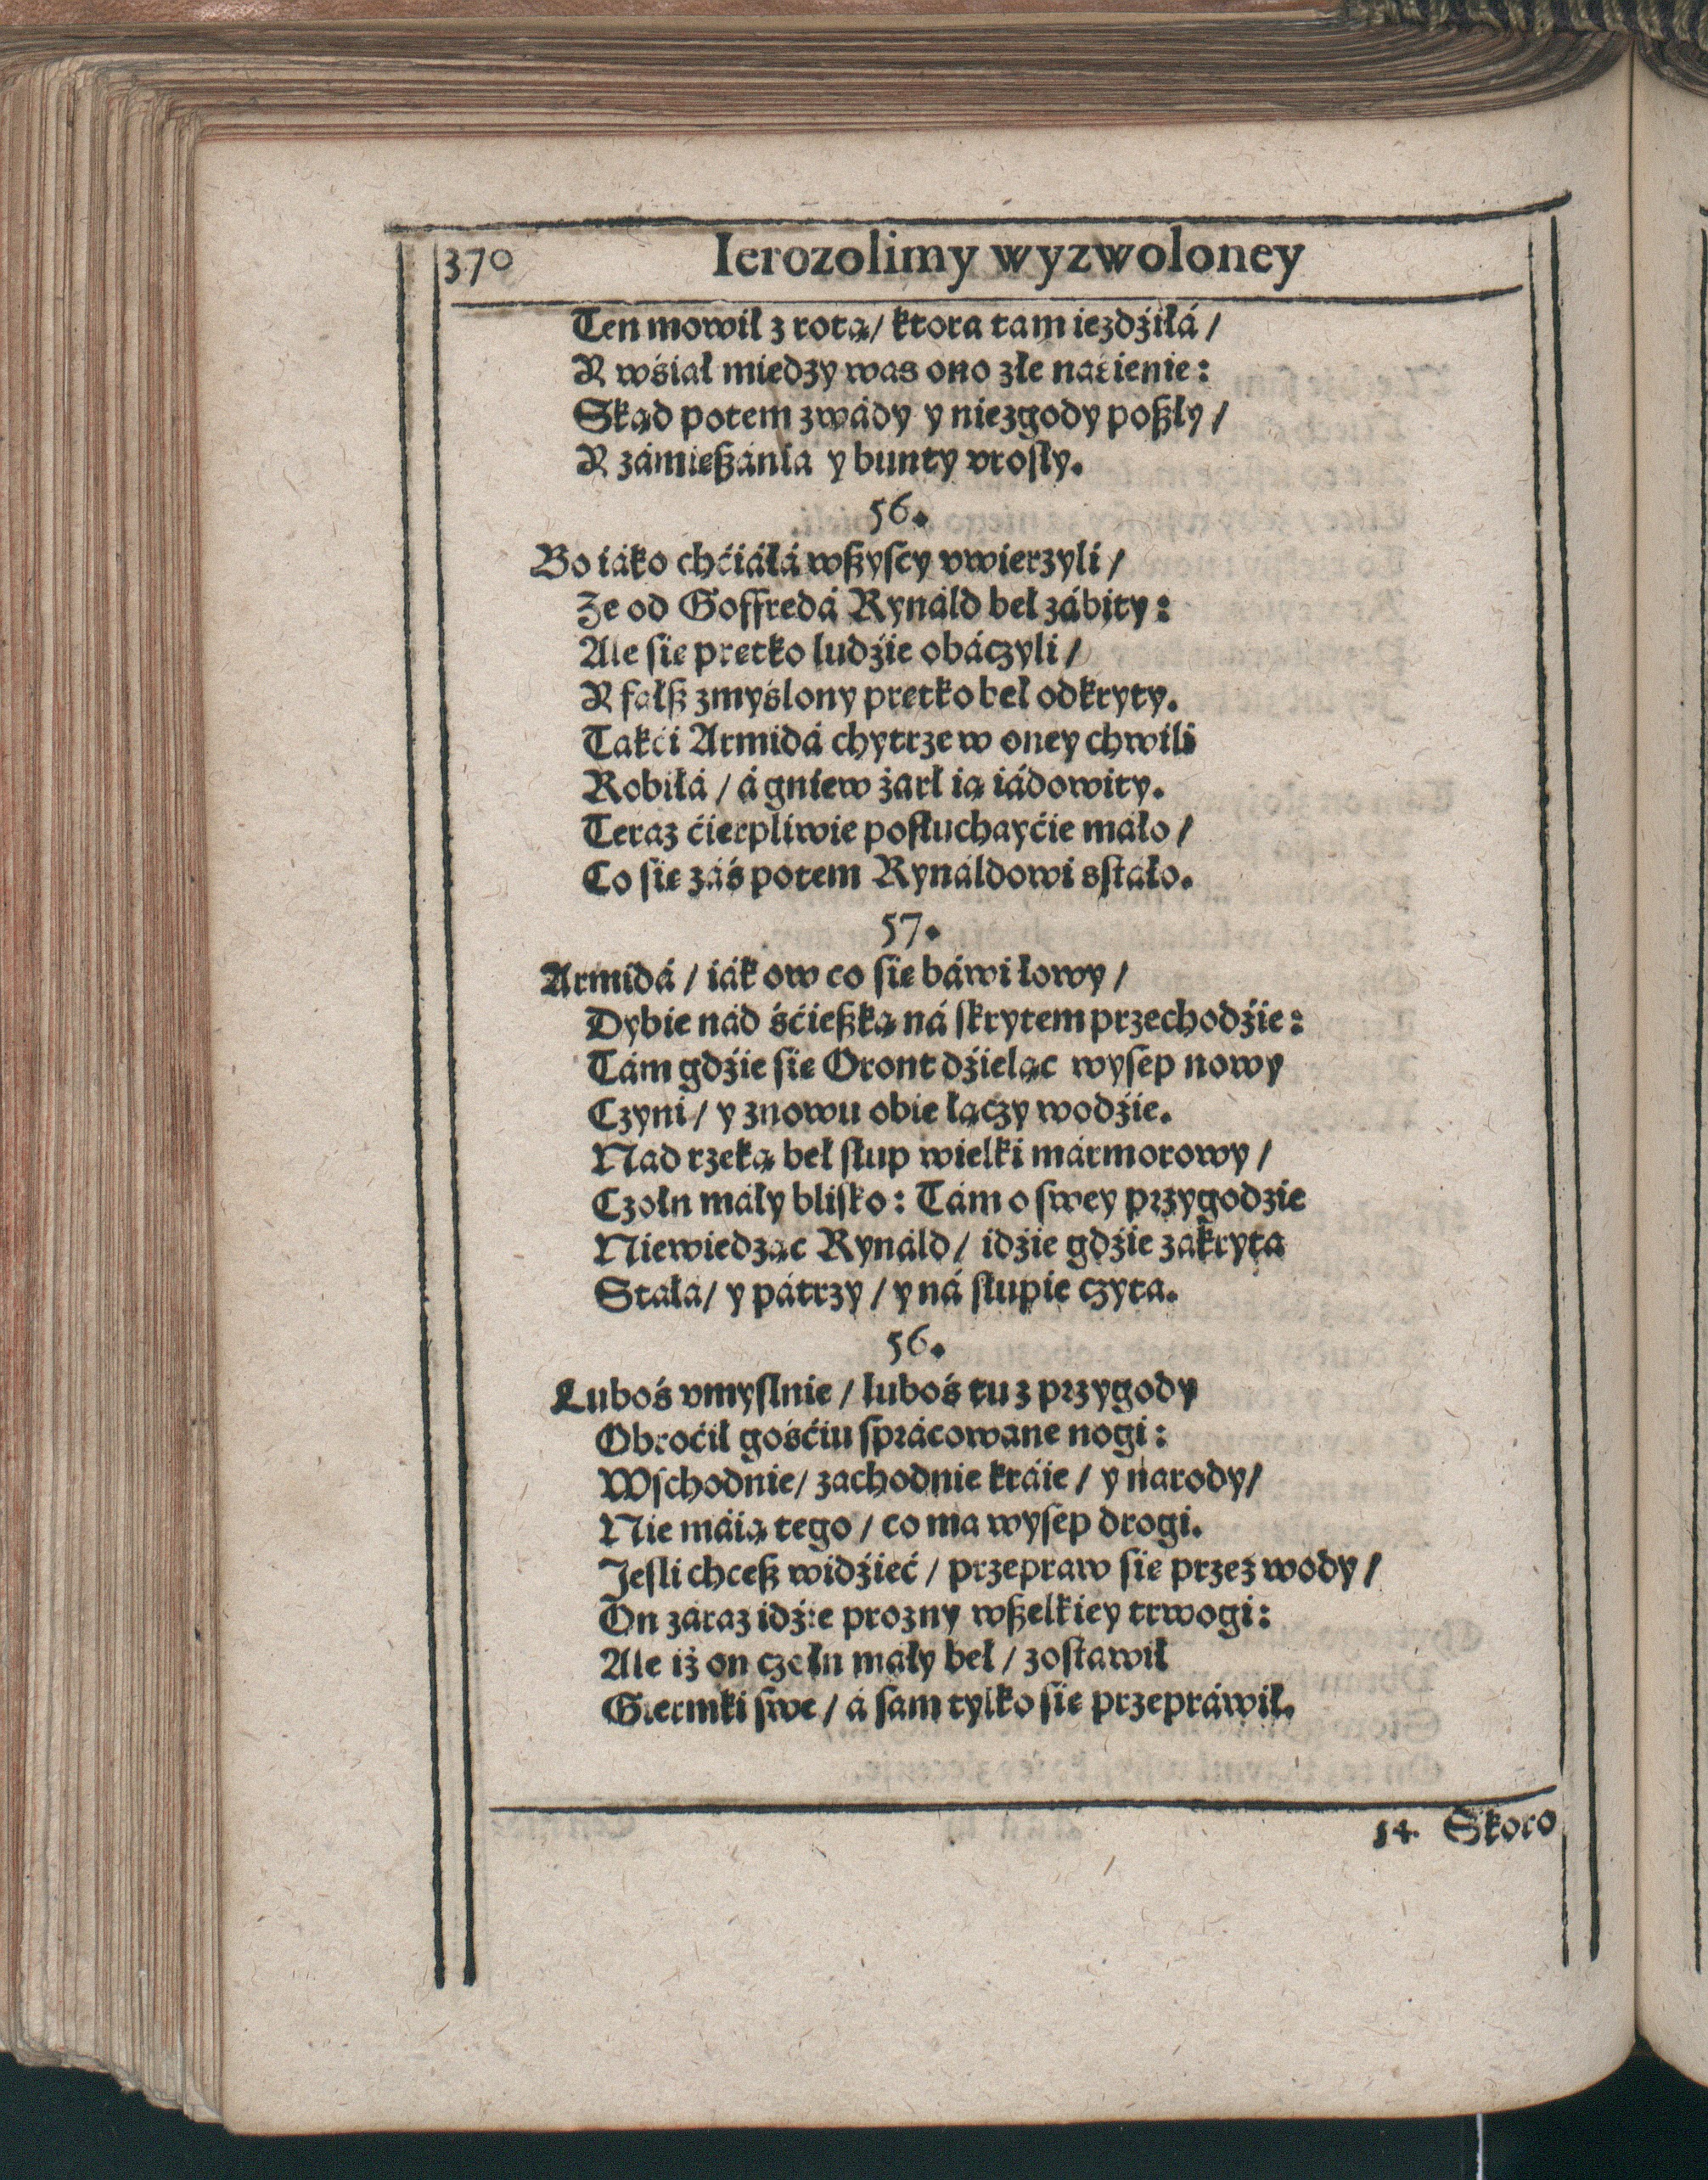 370 Ierozolimy wyzwoloney
Ten mowił z rotą/ ktora tam ieździłá/
Y wśiał miedzy was ono złe naśienie:
Skąd potem zwády y niezgody poßły/
Y zámießánia y bunty vrosły.
56.
Bo iáko chćiáłá wßyſcy vwierzyli/
Ze od Goffredá Rynáld beł zábity:
Ale ſie prętko ludźie obáczyli/
Y fałß zmyślony prętko beł odkryty.
Takći Armidá chytrze w oney chwili
Robiłá/ á gniew żarł ią iádowity.
Teraz ćierpliwie poſłuchayćie máło/
Co ſie záś potem Rynáldowi sſtało.
57.
Armidá/ iák ow co ſie báwi łowy/
Dybie nád śćießką ná ſkrytem przechodźie:
Tám gdźie ſie Oront dźieląc wyſep nowy
Czyni/ y znowu obie łączy wodźie.
Nad rzeką beł ſłup wielki mármorowy/
Czołn máły bliſko: Tám o ſwey przygodzie
Niewiedząc Rynáld/ idźie gdźie zakryta
Stała/ y pátrzy/ y ná ſłupie czyta.
56.
Luboś vmyſlnie/ luboś tu z przygody
Obroćił gośćiu ſprácowane nogi:
Wſchodnie/ zachodnie kráie/ y narody/
Nie máią tego/ co ma wyſep drogi.
Jeſli chceß widźieć/ przepraw ſie przez wody/
On záraz idźie prozny wßelkiey trwogi:
Ale iż on czołn máły beł/ zoſtawił
Giermki ſwe/ á ſam tylko ſie przepráwił.
14. Skoro